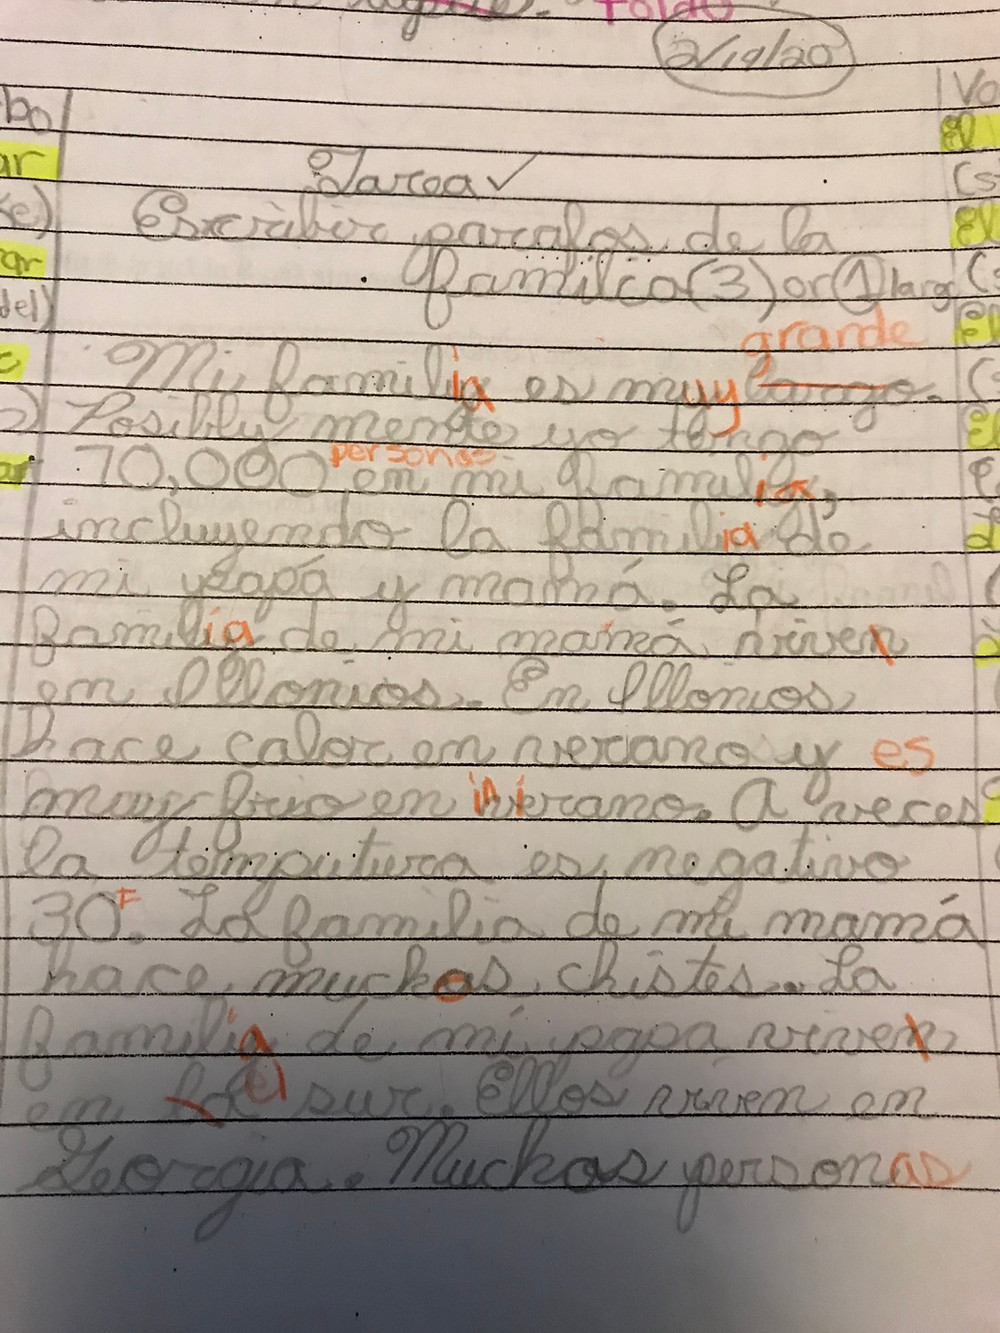 Toldo
2/19/20
bo
Vo
ar
El
Tarea ✓
(s
ke)
Escribir parafos de la
El
ar
familia (3) or (1) larg
del)
grande
El
Mi familia es muy largo.
Posiblly mente yo tengo
personas
70,000 en mi familia,
incluyendo la familia de
mi papá y mamá. La
familia de mi mamá viven
en Illonios. En Illonios
hace calor en verano y es
muy frio en inverano. A veces
la temputura es negativo
30°F. La familia de mi mamá
hace muchos chistes. La
familia de mi papa viven
en la el sur. Ellos viven en
Georgia. Muchas personas